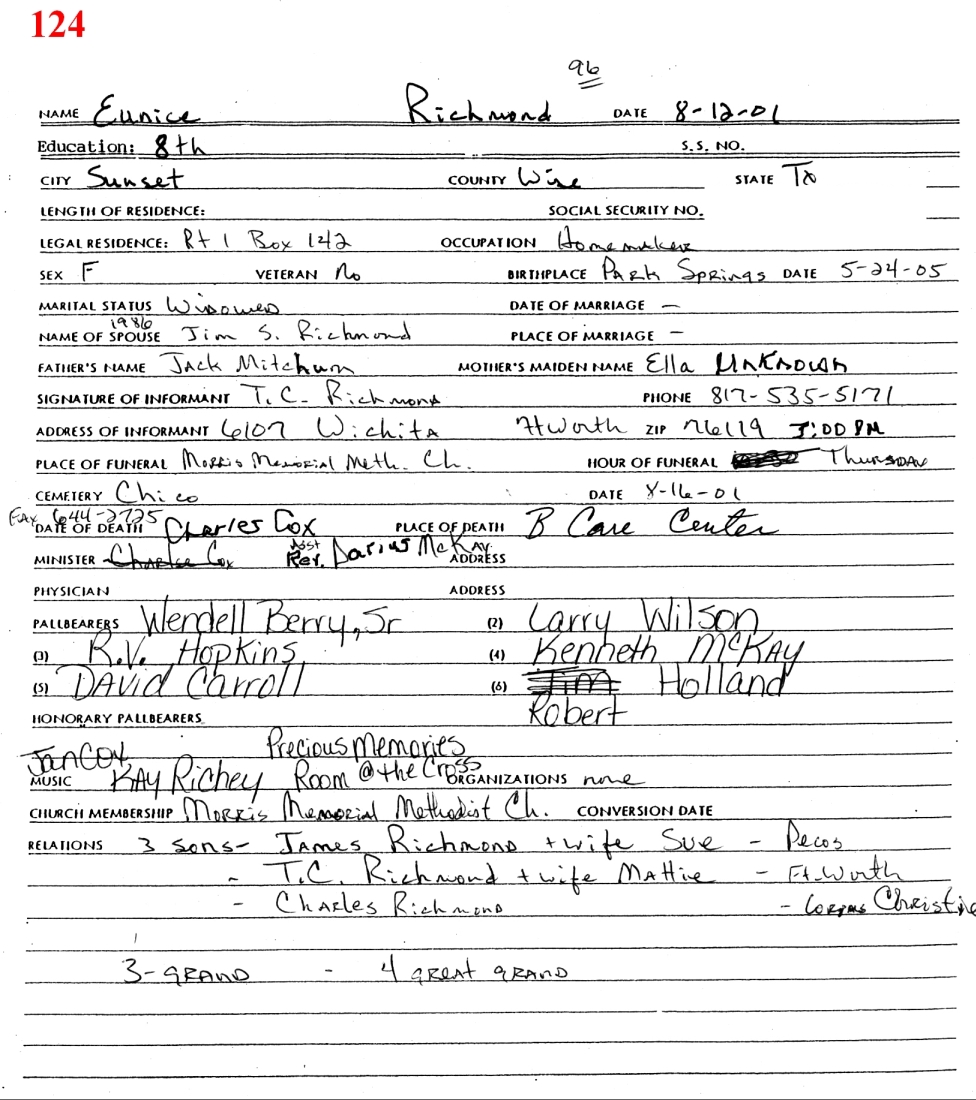 124
96
NAME Eunice Richmond DATE 8-12-01
Education: 8th S.S. NO.
CITY Sunset COUNTY Wise STATE Tx
LENGTH OF RESIDENCE: SOCIAL SECURITY NO.
LEGAL RESIDENCE: Rt 1 Box 142 OCCUPATION Homemaker
SEX F VETERAN No BIRTHPLACE Park Springs DATE 5-24-05
MARITAL STATUS Widowed DATE OF MARRIAGE -
1986
NAME OF SPOUSE Jim S. Richmond PLACE OF MARRIAGE -
FATHER'S NAME Jack Mitchum MOTHER'S MAIDEN NAME Ella Unknown
SIGNATURE OF INFORMANT T.C. Richmond PHONE 817-535-5171
ADDRESS OF INFORMANT 6107 Wichita Ft Worth ZIP 76119 :00 PM
PLACE OF FUNERAL Morris Memorial Meth. Ch. HOUR OF FUNERAL Thursday
CEMETERY Chico DATE 8-16-01
Fax 644-2725
DATE OF DEATH Charles Cox PLACE OF DEATH B Care Center
MINISTER Charles Cox Asst Rev. Darius McKay ADDRESS
PHYSICIAN ADDRESS
PALLBEARERS Wendell Berry, Sr (2) Larry Wilson
(3) R.V. Hopkins (4) Kenneth McKay
(5) David Carroll (6) Jim Holland
HONORARY PALLBEARERS Robert
Jan Cox Precious Memories
MUSIC Kay Richey Room @ the Cross ORGANIZATIONS none
CHURCH MEMBERSHIP Morris Memorial Methodist Ch. CONVERSION DATE
RELATIONS 3 sons- James Richmond + wife Sue - Pecos
- T.C. Richmond + wife Mattie - Ft. Worth
- Charles Richmond - Corpus Christie
3-grand - 4 great grand